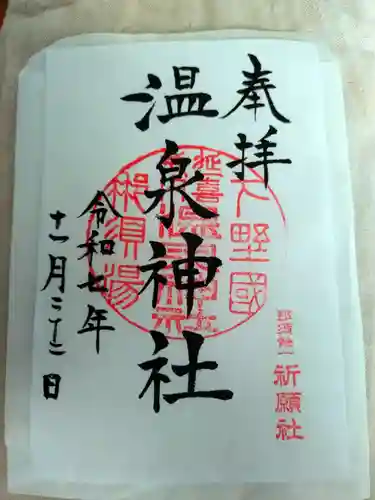 奉拝
温泉神社
令和七年
十一月二十二日
下野國
延喜式内
那須湯
祈願社